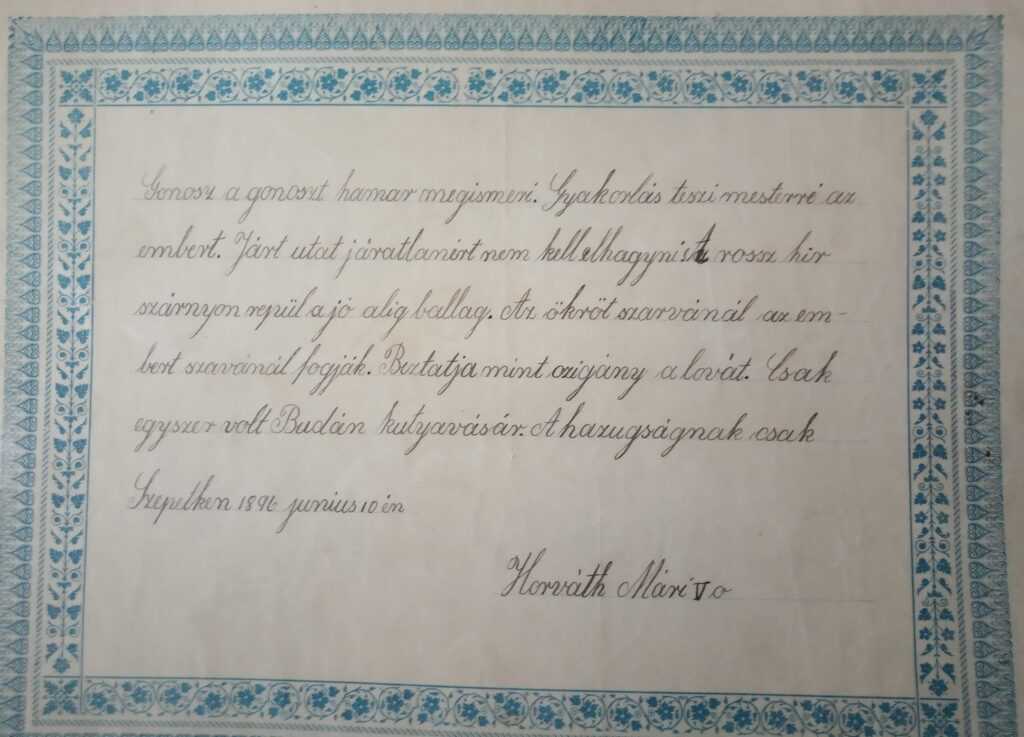 Gonosz a gonoszt hamar megismeri. Gyakorlás teszi mesterré az
embert. Járt utat járatlanért nem kell elhagyni A rossz hir
szárnyon repül a jó alig ballag. Az ökröt szarvánál az em-
bert szavánál fogják. Biztatja mint czigány a lovát. Csak
egyszer volt Budán kutyavásár. A hazugságnak csak
Szepetken 1896 junius 10 én
Horváth Mári V o